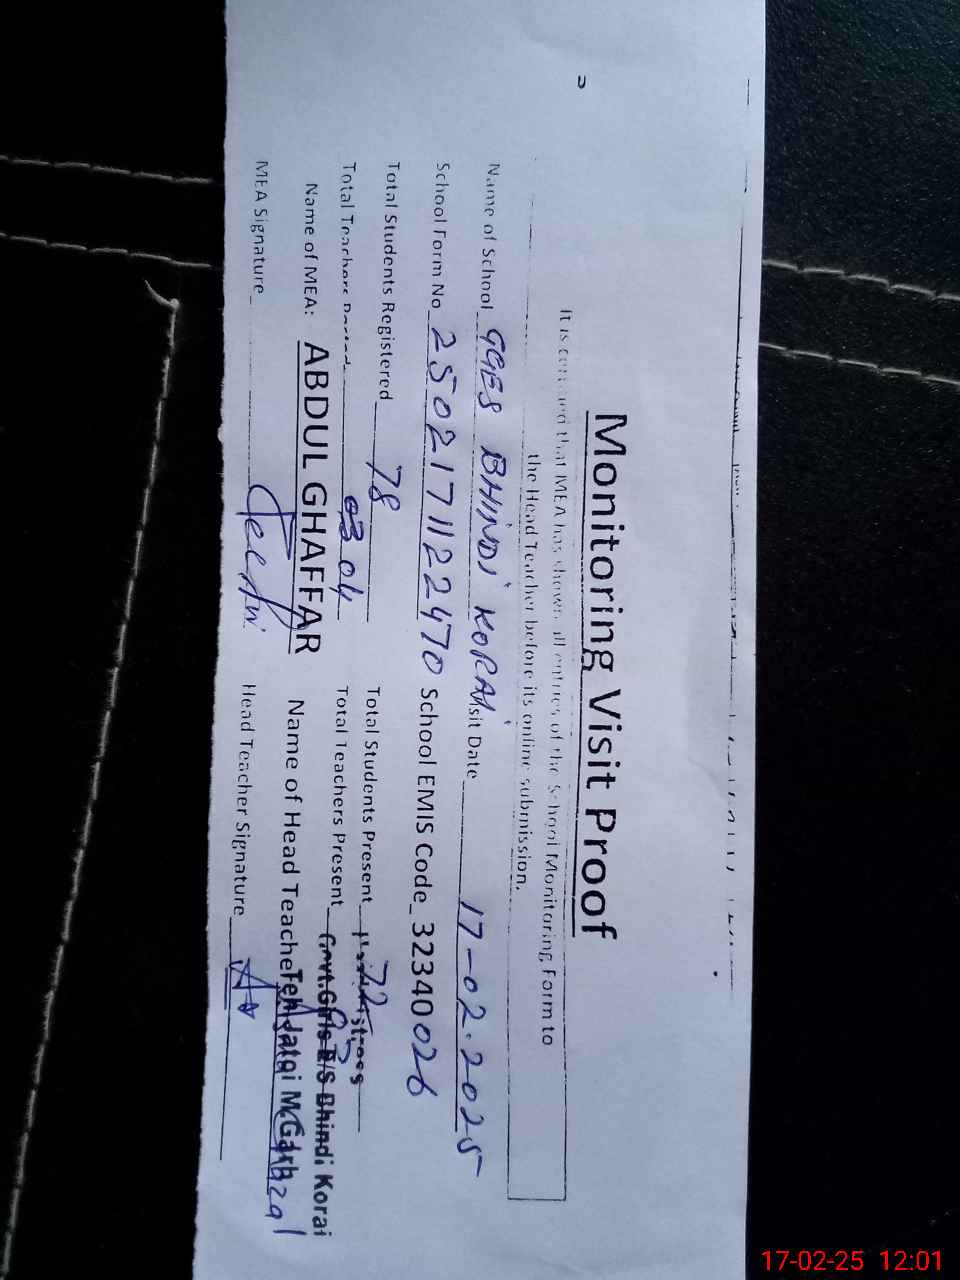 Monitoring Visit Proof
It is certified that MEA has shown all entries of the School Monitoring Form to
the Head Teacher before its online submission.
Name of School GGES BHINDI KORAI Visit Date 17-02-2025
School Form No 2502171122470 School EMIS Code 32340026
Total Students Registered 78 Total Students Present 72
Total Teachers Posted 03 04 Total Teachers Present 03
Name of MEA: ABDUL GHAFFAR Name of Head Teacher
MEA Signature Head Teacher Signature
Govt.Girls E/S Bhindi Korai
Teh Jatoi M.Garh
17-02-25 12:01